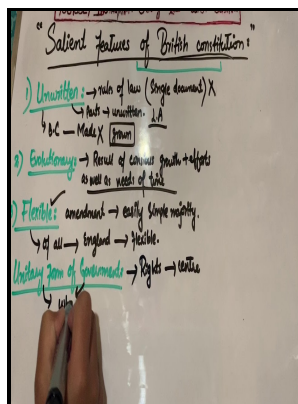 "Salient features of British constitution:"
1) Unwritten: → rule of law (Single document) X
→ Parts → unwritten. 1A
→ B.C — Made X grown
2) Evolutionary: → Result of conscious growth + efforts
as well as needs of time
Flexible: ✓ amendment → easily simple majority.
→ of all → England → flexible.
Unitary form of Government: → Rights → centre